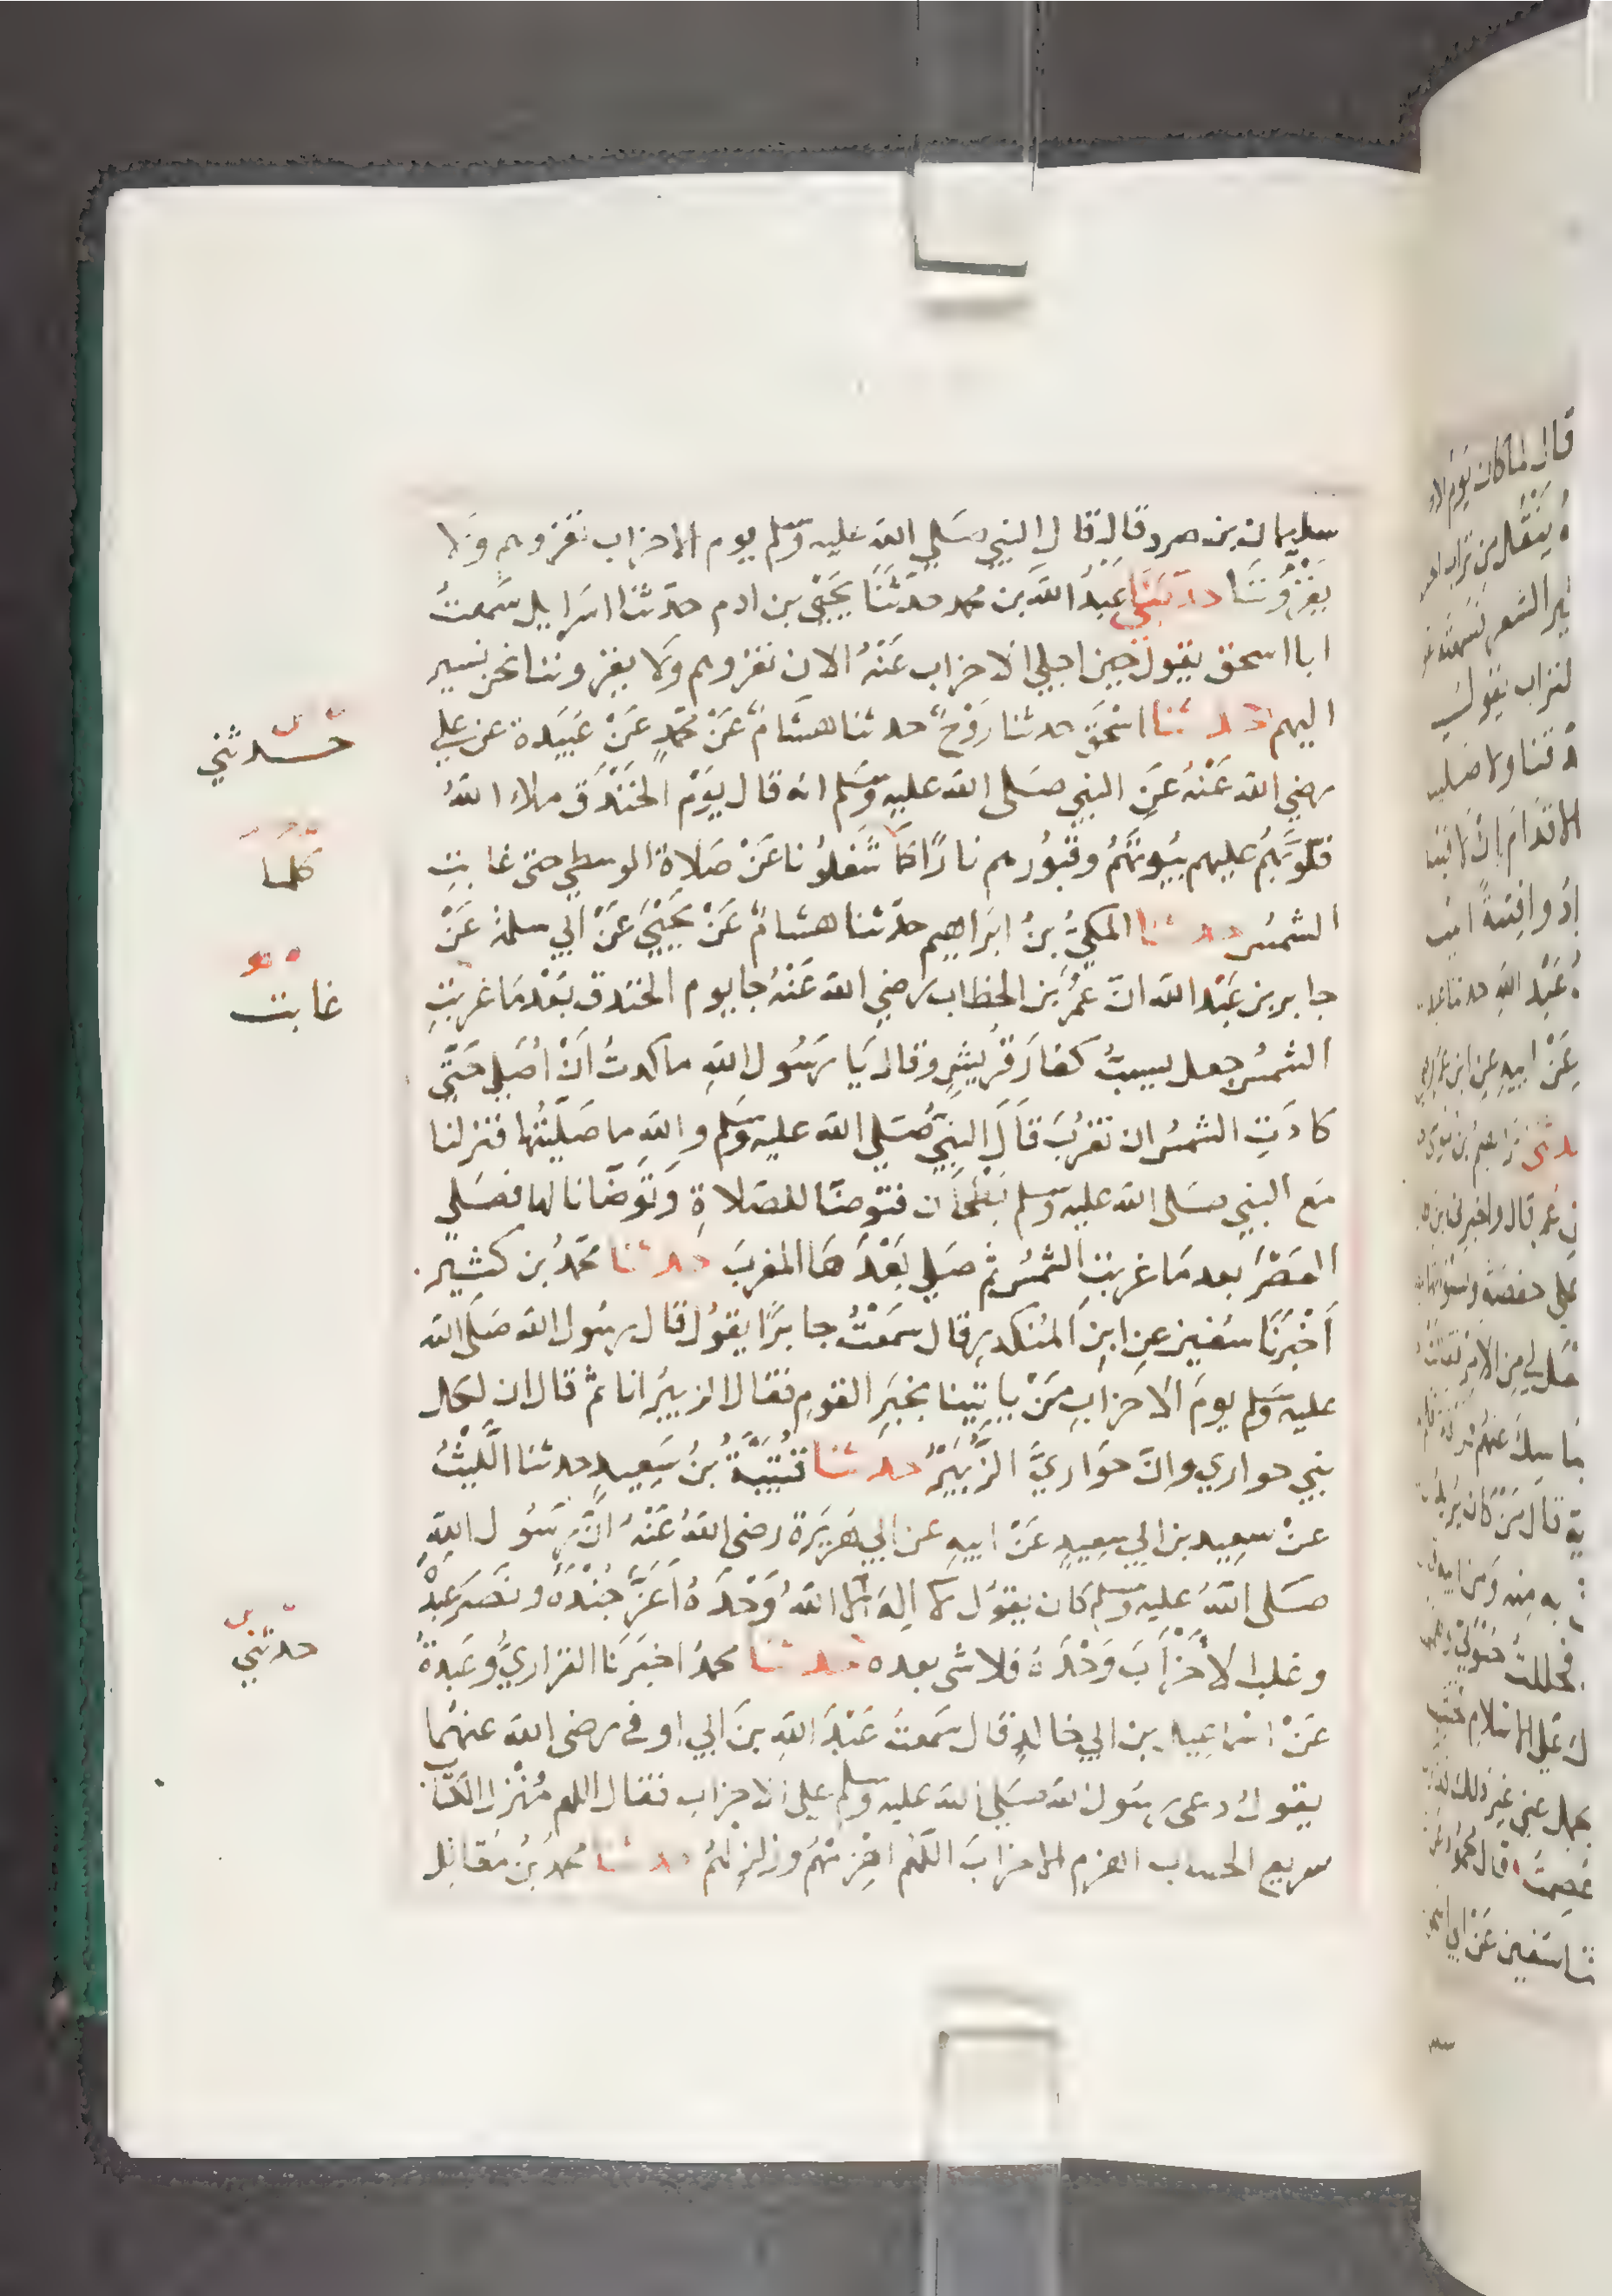 سليمان بن صرد قال قال النبي صَلي الله عليه وسلم يوم الاحزاب نغزوهم ولا
يَغْزُونَنَا حدثني عَبْدُ الله بن محمد حدثَنَا يَحْيَى بن ادم حدثنا اسرَايل سَمعتُ
ابا اسحق يقول حين اجلي الاحزاب عَنْهُ الان نغزوهم وَلا يغزوننا نحن نسير
اليهم حدثنا اسْحَق حدثنا رَوْحٌ حدثنا هشَامٌ عَنْ محمَّدٍ عَنْ عَبيدَة عن علي
رضي الله عَنْهُ عَنِ النبي صَلى الله عليه وسَلم انه قال يوَمَ الخنْدَق ملاء اللهُ
قلُوبَهُم عليهم بيُوتَهُمْ وقبُورهم نارًا كما شغلوُنا عَنْ صَلاة الوسطي حتى غابتِ
الشمسُ حدثنا المكيُّ بنُ ابرَاهيم حدثنا هشامٌ عَنْ يَحيَيَ عَنْ ابي سلمة عَنْ
جابر بن عَبْد الله انّ عمَرُ بن الخطاب رَضي الله عَنْهُ جا يوم الخندق بَعْدَ مَا غربتِ
الشمسُ جعل يسبُّ كفارَ قرُيشٍ وقال يَا رسُول اللهِ ما كدتُ اَنْ اُصَلِي حَتَّى
كادَتِ الشمسُ ان تغربَ قَالَ النبيُّ صُلي الله عليه وسَلم والله ما صَليتُها فنزلنا
مَع النبي صَلى الله عليه وسلم بُطحَان فتوضّا للصَلاةِ وَتوَضّانا لها فصَلى
العَصْرَ بعد مَا غربتِ الشمسُ ثم صَلي بَعْدَ هَا المغربَ حدثنا محمّدُ بن كثير
أخْبَرَنَا سفين عن ابنِ المنكدِر قال سَمعْتُ جابرًا يقوُل قال رسُول الله صَلَى الله
عليه وسَلم يومَ الاحزابِ مَنْ ياتِينا بخبَرِ القومِ فقال الزبيرُ انا ثم قال ان لكل
نبي حواري وانّ حوَاريَّ الزُّبَيْرُ حدثنا قتَيْبَةُ بنُ سَعِيدٍ حدثنا اللَّيْثُ
عَنْ سعِيد بن ابي سعِيدٍ عَنْ ابيهِ عن ابي هُرَيرَة رضي اللهُ عَنْهُ انَّ رسُول اللهِ
صَلى اللهُ عليه وسلم كان يقوُل لا اِلهَ الا اللهُ وَحْدَهُ اَعَزَّ جُنْدَهُ ونَصَرَ عَبْدَهُ
وغلب الاَحْزَابَ وَحْدَهُ فلا شي بعده حدثنا محمدٌ اخبَرنَا الفزاريُّ وعَبدةُ
عَنْ اسْماعِيل بن ابي خالدٍ قال سَمعتُ عَبْدَ اللهِ بنَ ابي اوفى رضي الله عنهُما
يقولُ دعى رسُول الله صَلي الله عليه وسلم على الاحزاب فقال اللهم مُنْزِل الكتاب
سريع الحساب اهزم الاحزابَ اللّهُم اهْزِمْهُم وزلزِلهُمْ حدثنا محمدُ بنُ مقَاتِل
حدثني
كلما
غابت
حدثني
قال لما كان يَوْمُ الا
يَنْقُل من تراب
الشعر فسَمعته
التراب يقول
دقنا ولا صَلينا
الاقدَامَ ان لاقينا
ارادوا فِتنةً ابَينا
عَبْدُ الله حدثنا عبد
عَنْ ابيهِ عن ابن
قال واخبرني ابن
على حفصَة
من الامر
قال مَنْ كان يُريد
فحللتُ
على الاسلام
عني غير ذلك
عُصمتَ قال محمود
ثنا سَفين عَنْ ابي